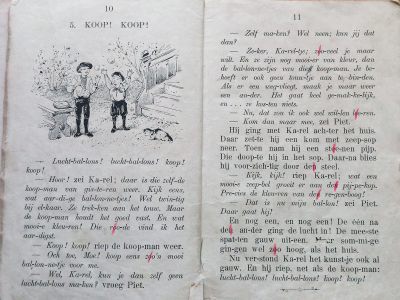 10
5. KOOP! KOOP!
— Lucht-bal-lons! lucht-bal-lons! koop!
koop!
— Hoor! zei Ka-rel; daar is die zelf-de
koop-man van gis-te-ren weer. Kijk eens,
wat aar-di-ge bal-lon-ne-tjes! Wel twin-tig
bij el-kaâr, hen aan het touw. Maar de
koop-man houdt het goed vast. En wat
mooi-e kleu-ren! Die roo-de vind ik het
aar-digst.
— Koop! koop! riep de koop-man weer.
— Och toe, Moe! koop eens zoo'n mooi
bal-lon-ne-tje voor me.
— Wel, Ka-rel, kun je dan zelf geen
lucht-bal-lons ma-ken? vroeg Piet.
11
— Zelf ma-ken? Wel neen; kun jij dat
dan?
— Ze-ker, Ka-rel-tje; zoo-veel je maar
wilt. En ze zijn nog mooi-er van kleur, dan
de bal-lon-ne-tjes van dien koop-man. Je be-
hoeft er ook geen touw-tje aan te bin-den.
Als er een weg-vliegt, maak je maar weer
een an-der. Het gaat heel ge-mak-ke-lijk,
en . . . ze kos-ten niets.
— Nu, dat zou ik ook wel wil-len lee-ren.
— Kom dan maar mee, zei Piet.
Hij ging met Ka-rel ach-ter het huis.
Daar zet-te hij een kom met zeep-sop
neer. Toen nam hij een stee-nen pijp.
Die doop-te hij in het sop. Daar-na blies
hij voor-zich-tig door den steel.
— Kijk, kijk! riep Ka-rel; wat een
mooi-e zeep-bel groeit er aan den pijp-kop.
Pre-cies de kleu-ren van den re-gen-boog!
— Dat is nu mijn bal-lon! zei Piet.
Daar gaat hij!
En nog een, en nog een! De één na
den an-der ging de lucht in! De mee-ste
spat-ten gauw uit-een. Maar som-mi-ge
gin-gen wel zoo hoog, als het huis.
Nu ver-stond Ka-rel het kunst-je ook al
gauw. En hij riep, net als de koop-man:
lucht-bal-lons! lucht-bal-lons! koop! koop!